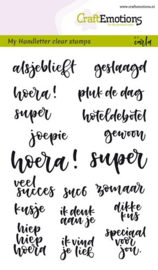 www.craftemotions.nl
CraftEmotions
My Handletter clear stamps
carla
alsjeblieft
geslaagd
hoera!
pluk de dag
super
hoteldebotel
joepie
gewoon
hoera!
super
veel
succes
suc6
zomaar
kusje
ik denk
aan je
dikke
kus
hiep
hiep
hoera
ik vind
je lief
speciaal
voor
jou.